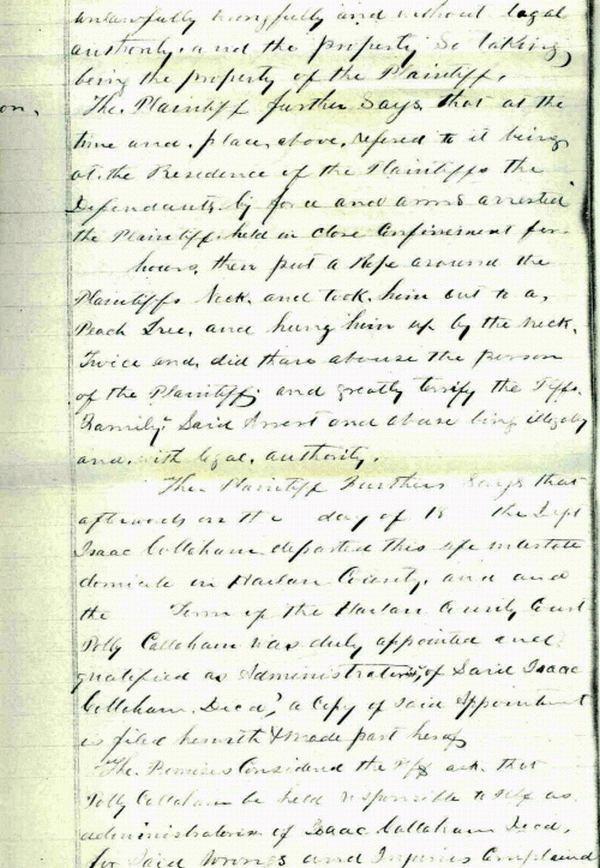 unlawfully wrongfully and without legal
authority. and the property so taking
being the property of the Plaintiff.
on,
The. Plaintiff further Says that at the
time and. place, above, refered to it being
at. the Residence of the Plaintiffs the
Defendants by force and arms arrested
the Plaintiff. held in Close Confinement for
hours, then put a Rope around the
Plaintiffs Neck. and took. him out to a,
Peach Tree, and hung him up by the neck,
Twice and, did thare abuse the person
of the Plaintiff; and greatly terrify the Plffs.
Family. Said Arrest and abuse being illegaly
and. with legal. authority.
The. Plaintiff Further Says that
afterwards on the day of 18 the Deft
Isaac Collaham departed this life intestate
domicile in Harlan County. and and
the Term of the Harlan County Court
Polly Callaham was duly appointed and
qualified as Administratorix, of Said Isaac
Collaham. Decd, a Copy of said Appointment
is filed herwith & made part herof
The. Premises Considered the Plff ask. that
Polly Callaham be held responsible to Plff as
administratorix of Isaac Callaham Decd,
for Said Wrongs and Injuries Complained